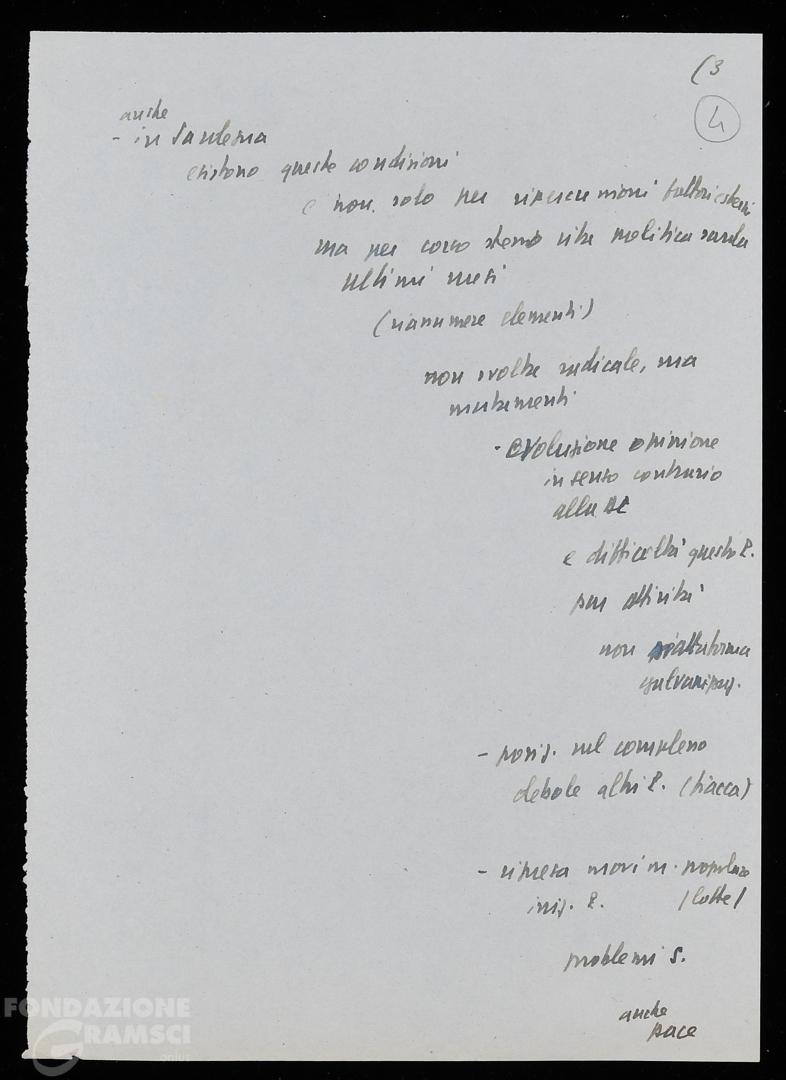 (3
4
anche
- in Sardegna
esistono queste condizioni
e non solo per ripercussioni fattori esterni
ma per corso stesso vita politica sarda
ultimi mesi
(riassumere elementi)
non svolta radicale, ma
mutamenti
- evoluzione opinione
in senso contrario
alla DC
e difficoltà questo P.
per attività
non piattaforma
- posiz. nel complesso
debole altri P. (fiacca)
- ripresa movim. popolare
iniz. P. (lotte)
problemi S.
anche
pace
FONDAZIONE
GRAMSCI
onlus